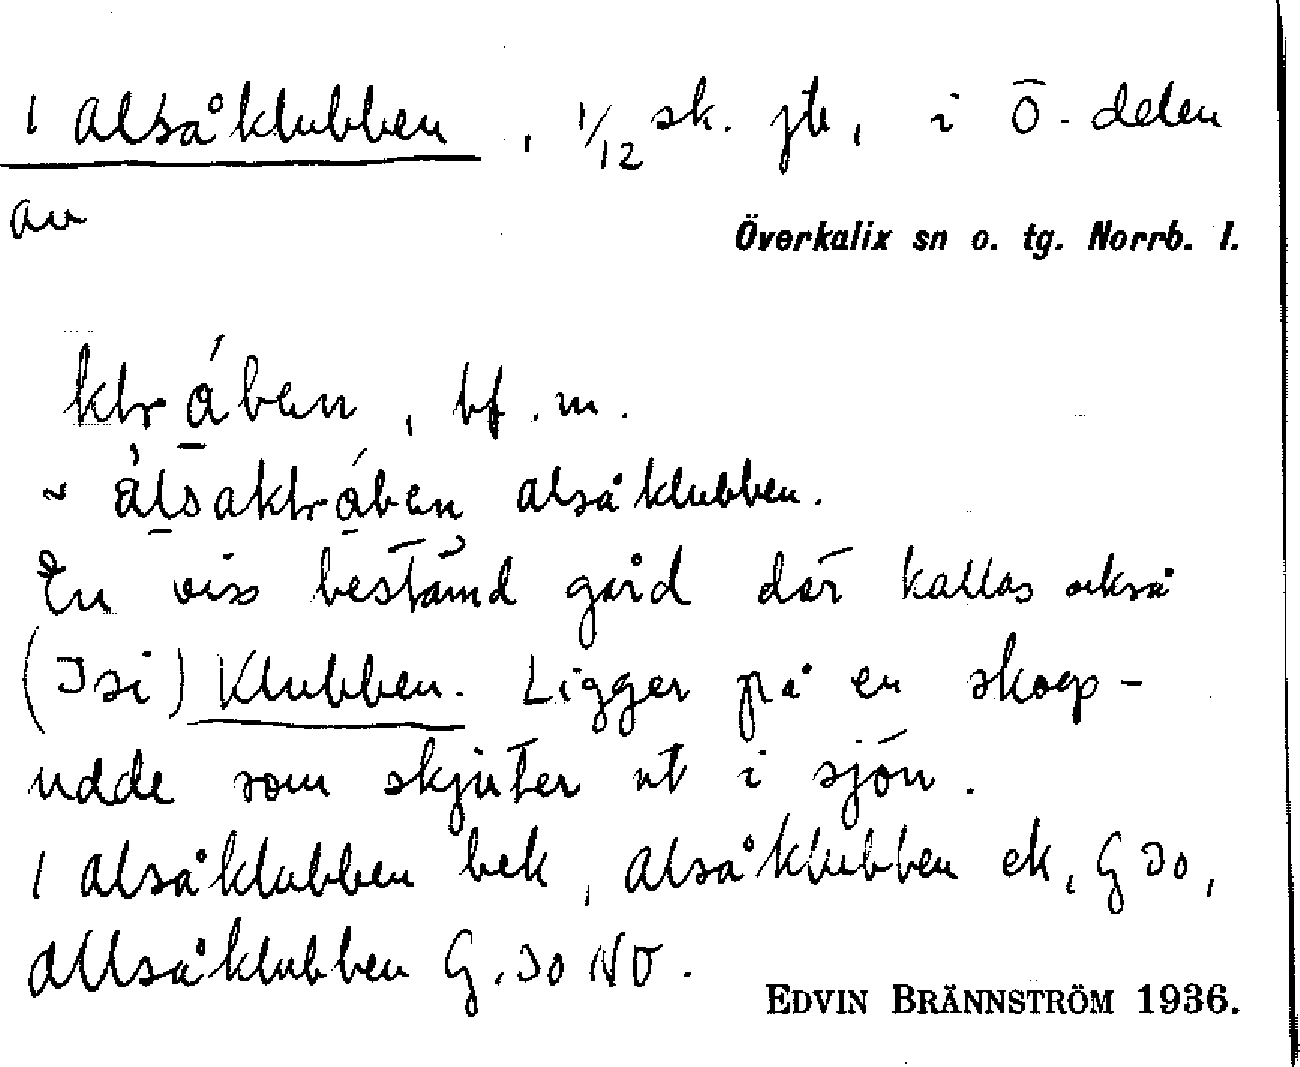 1 Alsåklubben, 1/12 sk. jb, i Ö-delen
av
Överkalix sn o. tg. Norrb. l.
bf. m.
~ Alsåklubben.
En viss bestämd gård där kallas också
(Isi) Klubben. Ligger på en skogs-
udde som skjuter ut i sjön.
1 Alsåklubben bek, Alsåklubben ek, G Jo,
Allsåklubben G. Jo NO.
EDVIN BRÄNNSTRÖM 1936.